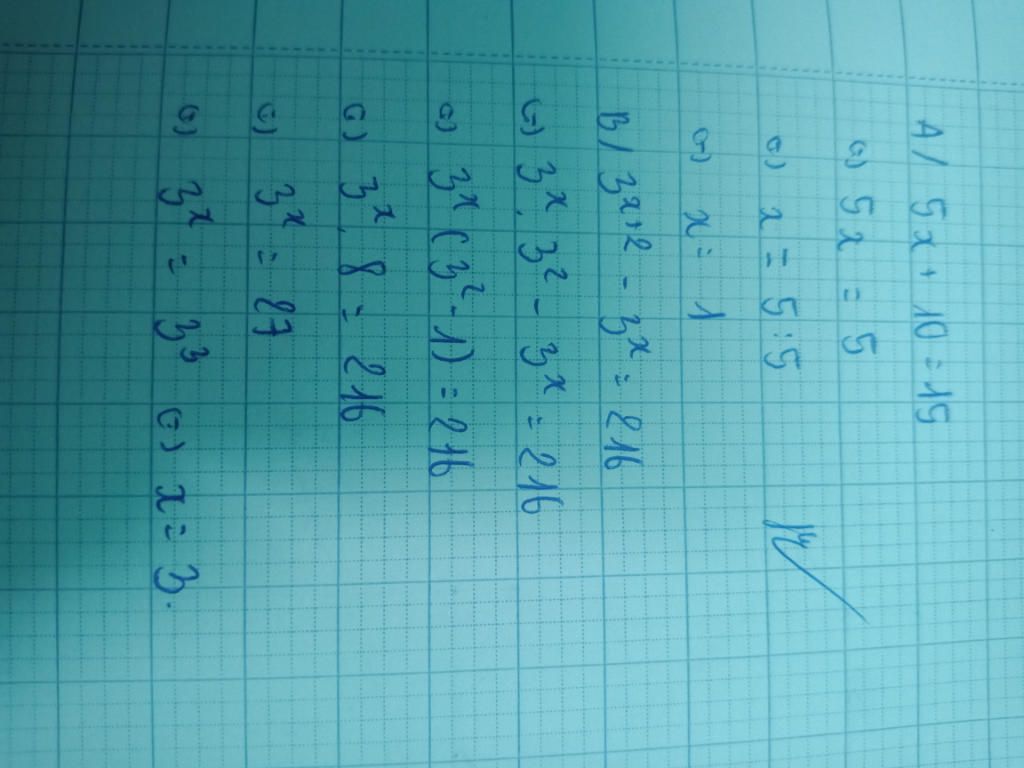 A/ 5x + 10 = 15
(=) 5x = 5
(=) x = 5:5
(=) x = 1
B/ 3^{x+2} - 3^x = 216
(=) 3^x . 3^2 - 3^x = 216
(=) 3^x (3^2 - 1) = 216
(=) 3^x . 8 = 216
(=) 3^x = 27
(=) 3^x = 3^3 (=) x = 3.